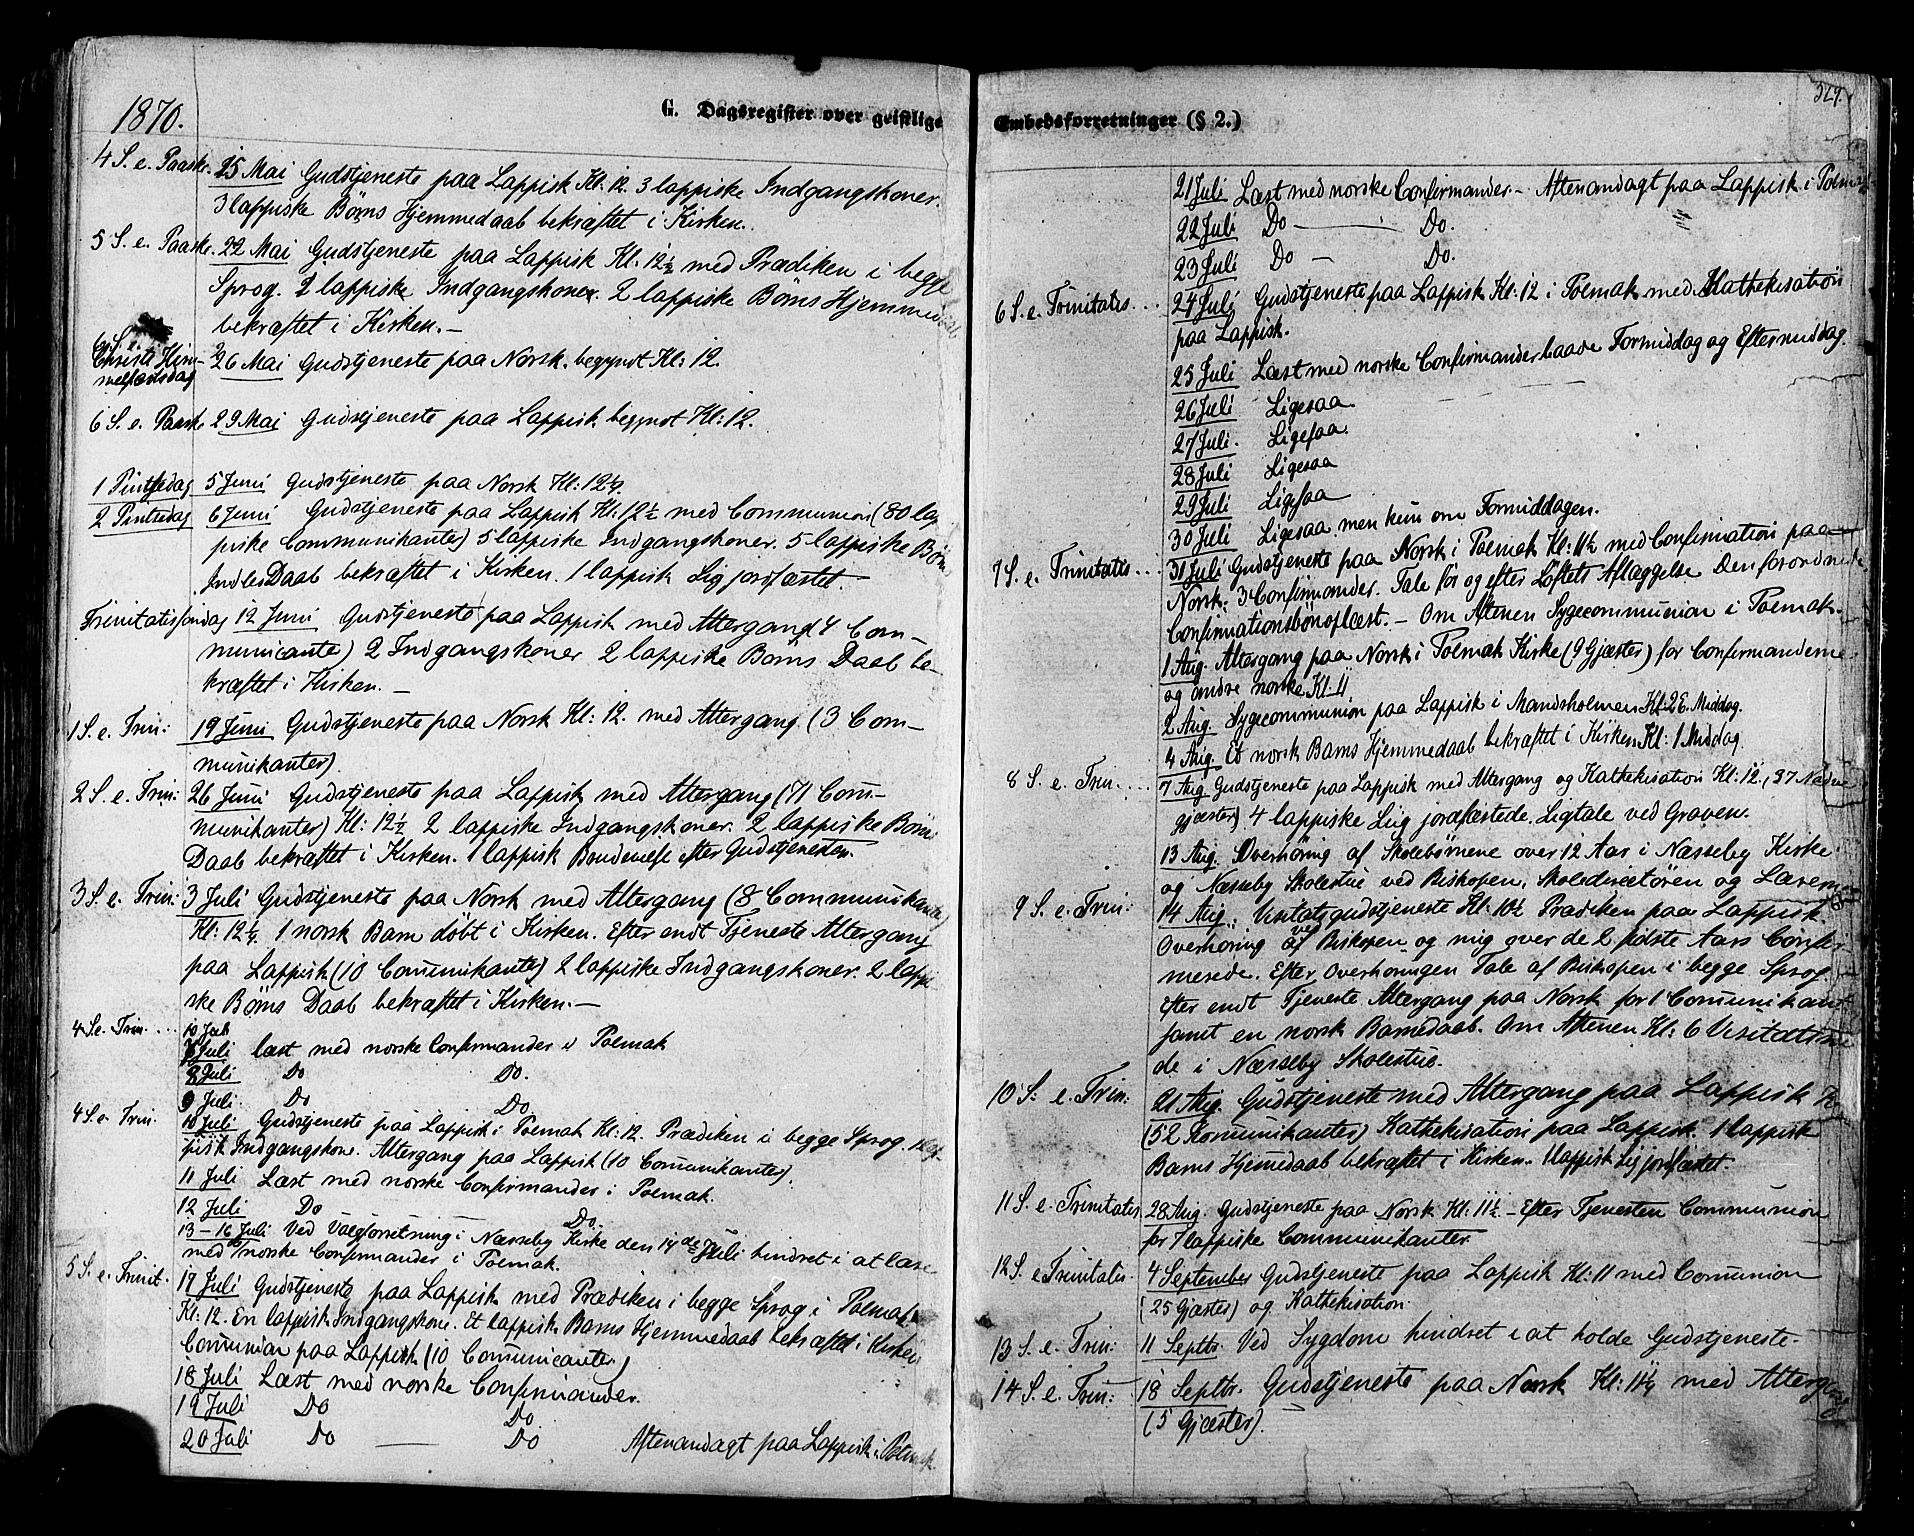 1870.
G. Dagsregister over geistlige
4 S. e. Paaske. 15 Mai Gudstjeneste paa Lappisk Kl. 12. 3 lappiske Indgangskoner.
3 lappiske Børns Hjemmedaab bekræftet i Kirken.
5 S. e. Paaske. 22 Mai Gudstjeneste paa Lappisk Kl: 12½ med Prædiken i begge
Sprog. 2 lappiske Indgangskoner. 2 lappiske Børns Hjemmedaab
bekræftet i Kirken. –
Christi Him-
melfartsdag 26 Mai Gudstjeneste paa Norsk. begyndt Kl: 12.
6 S. e. Paaske 29 Mai Gudstjeneste paa Lappisk begyndt Kl: 12.
1 Pintsedag 5 Juni Gudstjeneste paa Norsk Kl: 12¼.
2 Pintsedag 6 Juni Gudstjeneste paa Lappisk Kl: 12½ med Communion (80 lap
piske Communikanter) 5 lappiske Indgangskoner. 5 lappiske Børn
Daab bekræftet i Kirken. 1 lappisk Lig jordfæstet. –
Trinitatissøndag 12 Juni Gudstjeneste paa Lappisk med Altergang (4 Com-
municanter) 2 Indgangskoner 2 lappiske Børns Daab be-
kræftet i Kirken. –
1 S. e. Trin: 19 Juni Gudstjeneste paa Norsk Kl: 12. med Altergang. (3 Com-
munikanter).
2 S. e. Trin: 26 Juni Gudstjeneste paa Lappisk med Altergang (71 Com-
munikanter) Kl: 12½ 2 lappiske Indgangskoner. 2 lappiske Børns
Daab bekræftet i Kirken. 1 lappisk Brudevielse efter Gudstjenesten.
3 S. e. Trin: 3 Juli Gudstjeneste paa Norsk med Altergang (8 Communikanter)
Kl: 12¼. 1 norsk Barn døbt i Kirken. Efter endt Tjeneste Altergang
paa Lappisk (10 Comunikanter) 2 lappiske Indgangskoner. 2 lappi
ske Børns Daab bekræftet i Kirken. –
4 S. e. Trin. ... 10 Juli
7 Juli læst med norske Confirmander i Polmak
8 Juli Do Do.
9 Juli. Do Do
4 S. e. Trin. 10 Juli Gudstjeneste paa Lappisk i Polmak Kl: 12. Prædiken i begge Sprog. 1 lap-
pisk Indgangskone. Altergang paa Lappisk (10 Comunikanter).
11 Juli Læst med norske Confirmander i Polmak.
12 Juli Do Do.
13 – 16 Juli Ved Valgforretning i Næsseby Kirke den 14de Juli hindret i at læse
med norske Confirmander i Polmak.
5 S. e. Trinit. 17 Juli Gudstjeneste paa Lappisk med Prædiken i begge Sprog i Polmak
Kl: 12. En lappisk Indgangskone. Et lappisk Barns Hjemmedaab bekræftet i Kirken
Comunion paa Lappisk (10 Comunicanter)
18 Juli Læst med norske Confirmander.
19 Juli Do Do
20 Juli Do – Do Aftenandagt paa Lappisk i Polmak.
Embedsforretninger (§ 2.)
329.
21 Juli Læst med norske Confirmander. – Aftenandagt paa Lappisk i Polmak
22 Juli Do – Do.
23 Juli Do – Do.
6 S. e. Trinitatis ... 24 Juli Gudstjeneste paa Lappisk Kl: 12 i Polmak med Kathekisation
paa Lappisk.
25 Juli Læst med norske Confirmander baade Formiddag og Eftermiddag.
26 Juli Ligesaa.
27 Juli. Ligesaa.
28 Juli Ligesaa
29 Juli Ligesaa
30 Juli Ligesaa, men kun om Formiddagen.
7 S. e. Trinitatis ... 31 Juli Gudstjeneste paa Norsk i Polmak Kl: 11½ med Confirmation paa
Norsk: 3 Confirmander. Tale før og efter Løftets Aflæggelse Den forordnede
Confirmationsbøn oplæst. – Om Aftenen Sygecommunion i Polmak.
1 Aug. Altergang paa Norsk i Polmak Kirke (9 Gjæster) for Confirmanderne
og andre norske Kl. 11
2 Aug. Sygecommunion paa Lappisk i Mandsholmen Kl: 2 E. Middag.
4 Aug. Et norsk Barns Hjemmedaab bekræftet i Kirken Kl: 1 Middag.
8 S. e. Trin. ... 7 Aug Gudstjeneste paa Lappisk med Altergang og Kathekisation Kl: 12. (37 Nadver
gjæster) 4 lappiske Liig jordfæstede. Ligtale ved Graven.
13 Aug. Overhøring af Skolebørnene over 12 Aar i Næsseby Kirke
og Næsseby Skolestue ved Biskopen, Skoledirectøren og
9 S. e. Trin: 14 Aug: Visitatsgudstjeneste Kl: 10½ Prædiken paa Lappisk.
Overhøring ved Biskopen og mig over de 2 sidste Aars Confir-
merede. Efter Overhøringen Tale af Biskopen i begge Sprog.
Efter endt Tjeneste Altergang paa Norsk for 1 Comunikant
samt en norsk Barnedaab. Om Aftenen Kl: 6
de i Næsseby Skolestue.
10 S: e. Trin: 21 Aug. Gudstjeneste med Altergang paa Lappisk
(52 Komunikanter) Kathekisation paa Lappisk. 1 lappisk
Barns Hjemedaab bekræftet i Kirken. 1 lappisk Lig jordfæstet.
11 S. e. Trinitatis 28 Aug. Gudstjeneste paa Norsk Kl: 11½ – Efter Tjenesten Communion
for 7 lappiske Communikanter.
12 S. e Trinitatis. 4 September Gudstjeneste paa Lappisk Kl: 11 med Comunion
(25 Gjæster) og Kathekisation.
13 S. e. Trin: 11 Septbr. Ved Sygdom hindret i at holde Gudstjeneste.
14 S. e. Trin: 18 Septbr. Gudstjeneste paa Norsk Kl: 11¼ med Altergang
(5 Gjæster).